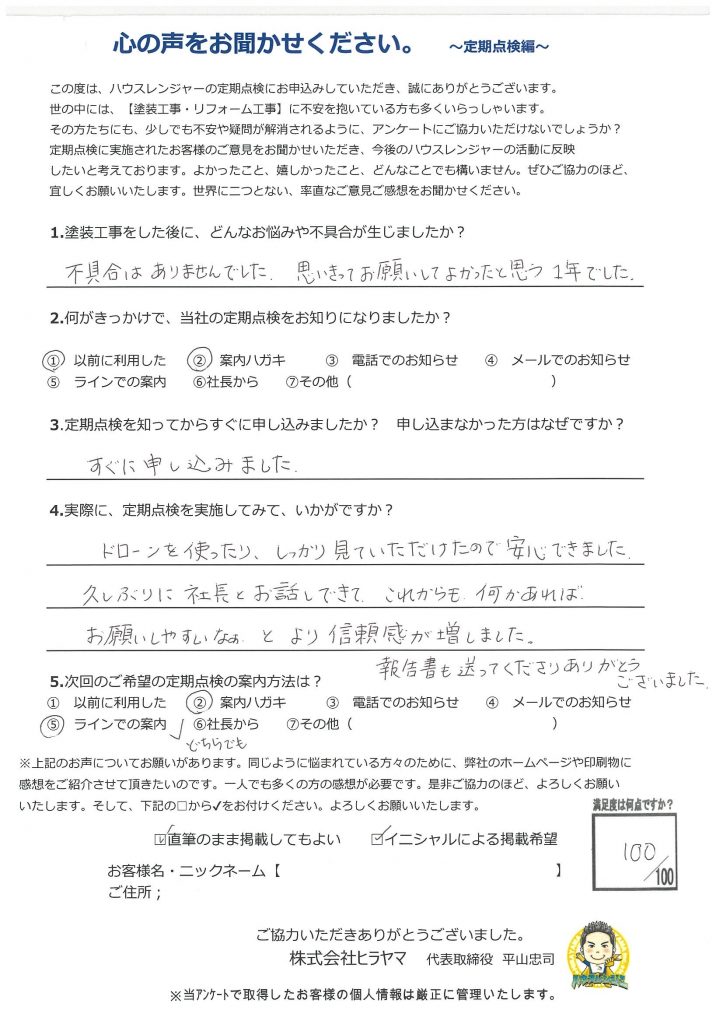 心の声をお聞かせください。　～定期点検編～
この度は、ハウスレンジャーの定期点検にお申込みしていただき、誠にありがとうございます。
世の中には、【塗装工事・リフォーム工事】に不安を抱いている方も多くいらっしゃいます。
その方たちにも、少しでも不安や疑問が解消されるように、アンケートにご協力いただけないでしょうか？
定期点検に実施されたお客様のご意見をお聞かせいただき、今後のハウスレンジャーの活動に反映
したいと考えております。よかったこと、嬉しかったこと、どんなことでも構いません。ぜひご協力のほど、
宜しくお願いいたします。世界に二つとない、率直なご意見ご感想をお聞かせください。
1.塗装工事をした後に、どんなお悩みや不具合が生じましたか？
不具合はありませんでした。思いきってお願いしてよかったと思う1年でした。
2.何がきっかけで、当社の定期点検をお知りになりましたか？
①　以前に利用した　②　案内ハガキ　③　電話でのお知らせ　④　メールでのお知らせ
⑤　ラインでの案内　⑥社長から　⑦その他（　）
3.定期点検を知ってからすぐに申し込みましたか？　申し込まなかった方はなぜですか？
すぐに申し込みました。
4.実際に、定期点検を実施してみて、いかがですか？
ドローンを使ったり、しっかり見ていただけたので安心できました。
久しぶりに社長とお話しできて、これからも何かあれば
お願いしやすいなぁ と より信頼感が増しました。
報告書も送ってくださりありがとう
ございました。
5.次回のご希望の定期点検の案内方法は？
①　以前に利用した　②　案内ハガキ　③　電話でのお知らせ　④　メールでのお知らせ
⑤　ラインでの案内　⑥社長から　⑦その他（　）
どちらでも
※上記のお声についてお願いがあります。同じように悩まれている方々のために、弊社のホームページや印刷物に
感想をご紹介させて頂きたいのです。一人でも多くの方の感想が必要です。是非ご協力のほど、よろしくお願い
いたします。そして、下記の□から✓をお付けください。よろしくお願いいたします。
満足度は何点ですか？
☑直筆のまま掲載してもよい　☑イニシャルによる掲載希望
100/100
お客様名・ニックネーム【　】
ご住所；
ご協力いただきありがとうございました。
株式会社ヒラヤマ　代表取締役　平山忠司
ハウスレンジャー
※当アンケートで取得したお客様の個人情報は厳正に管理いたします。